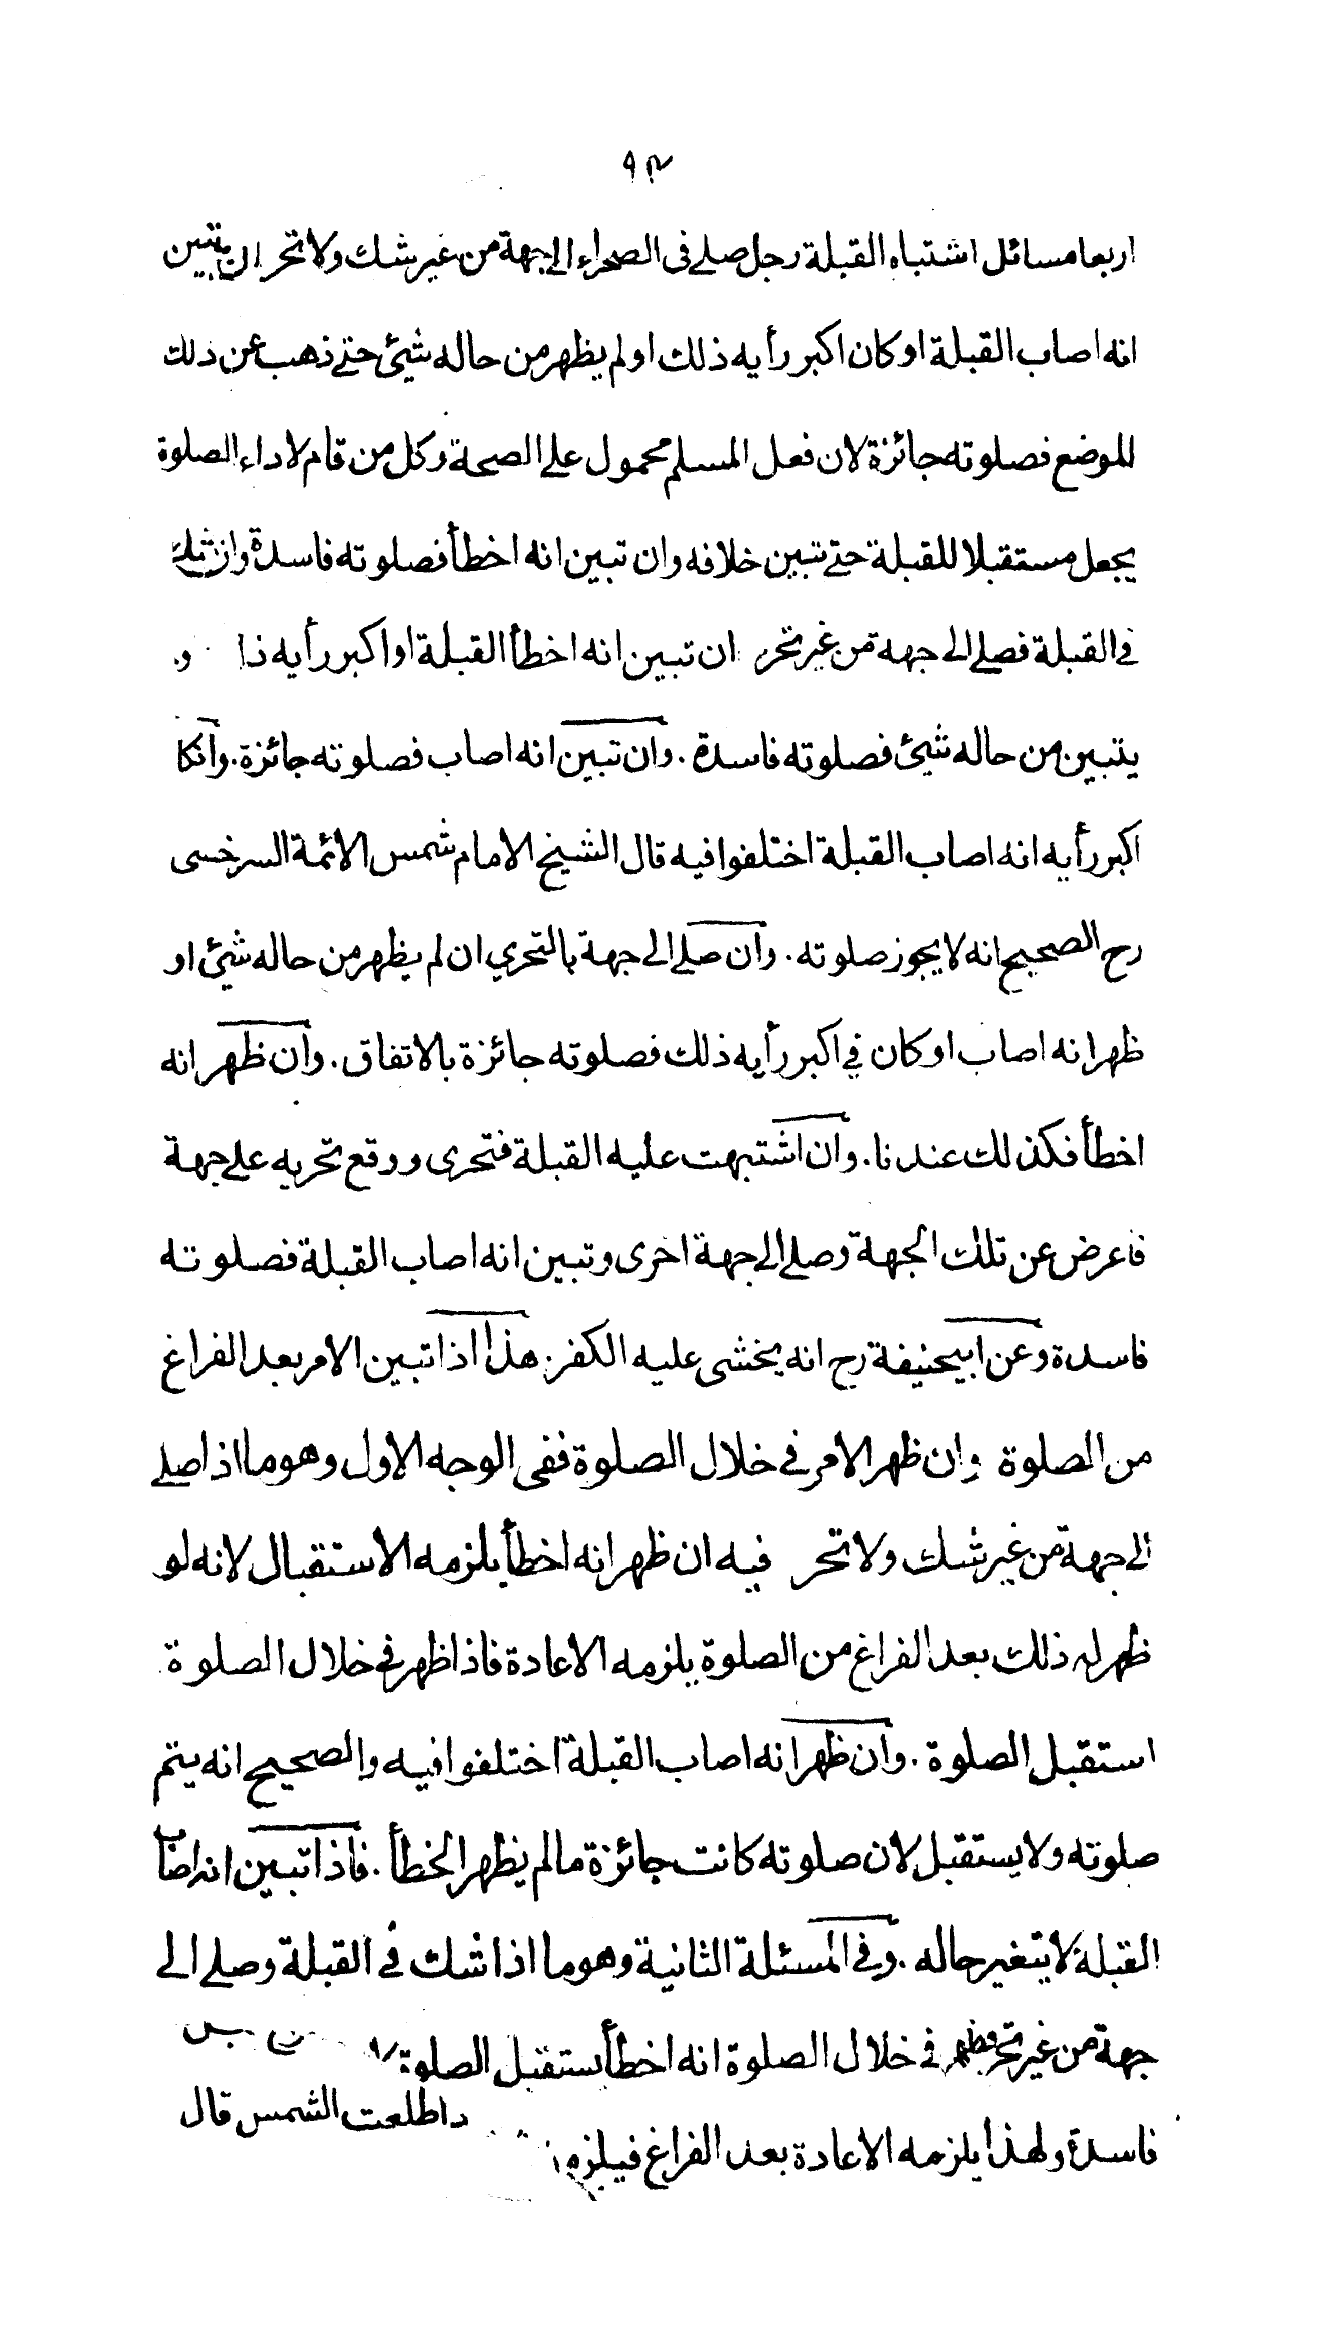 ٩٣
اربعا مسائل اشتباه القبلة رجل صلے فى الصحراء الى جهة من غير شك ولا تحر ان تبين
انه اصاب القبلة او كان اكبر رأيه ذلك او لم يظهر من حاله شيئ حتے ذهب عن ذلك
للموضع فصلوته جائزة لان فعل المسلم محمول علے الصحة وكل من قام لاداء الصلوة
يجعل مستقبلا للقبلة حتے تبين خلافه وان تبين انه اخطأ فصلوته فاسدة وان شك
فى القبلة فصلے الى جهة من غير تحر ان تبين انه اخطأ القبلة او اكبر رأيه ذا و
يتبين من حاله شيئ فصلوته فاسدة . وان تبين انه اصاب فصلوته جائزة . وانكا
اكبر رأيه انه اصاب القبلة اختلفوا فيه قال الشيخ الامام شمس الائمة السرخسى
رح الصحيح انه لا يجوز صلوته . وان صلے الى جهة بالتحري ان لم يظهر من حاله شيئ او
ظهر انه اصاب او كان في اكبر رأيه ذلك فصلوته جائزة بالاتفاق . وان ظهر انه
اخطأ فكذلك عندنا . وان اشتبهت عليه القبلة فتحرى ووقع تحريه علے جهة
فاعرض عن تلك الجهة وصلے الى جهة اخرى وتبين انه اصاب القبلة فصلوته
فاسدة وعن ابيحنيفة رح انه يخشى عليه الكفر . هذا اذا تبين الامر بعد الفراغ
من الصلوة وان ظهر الامر في خلال الصلوة ففى الوجه الاول وهو ما اذا صلے
الى جهة من غير شك ولا تحر فيه ان ظهر انه اخطأ يلزمه الاستقبال لانه لو
ظهر له ذلك بعد الفراغ من الصلوة يلزمه الاعادة فاذا ظهر في خلال الصلوة
استقبل الصلوة . وان ظهر انه اصاب القبلة اختلفوا فيه والصحيح انه يتم
صلوته ولا يستقبل لان صلوته كانت جائزة ما لم يظهر الخطأ . فاذا تبين انه اصاب
القبلة لا يتغير حاله . وفى المسئلة الثانية وهو ما اذا شك فى القبلة وصلے الى
جهة من غير تحر فظهر في خلال الصلوة انه اخطأ يستقبل الصلوة
فاسدة ولهذا يلزمه الاعادة بعد الفراغ فيلزمه اطلعت الشمس قال